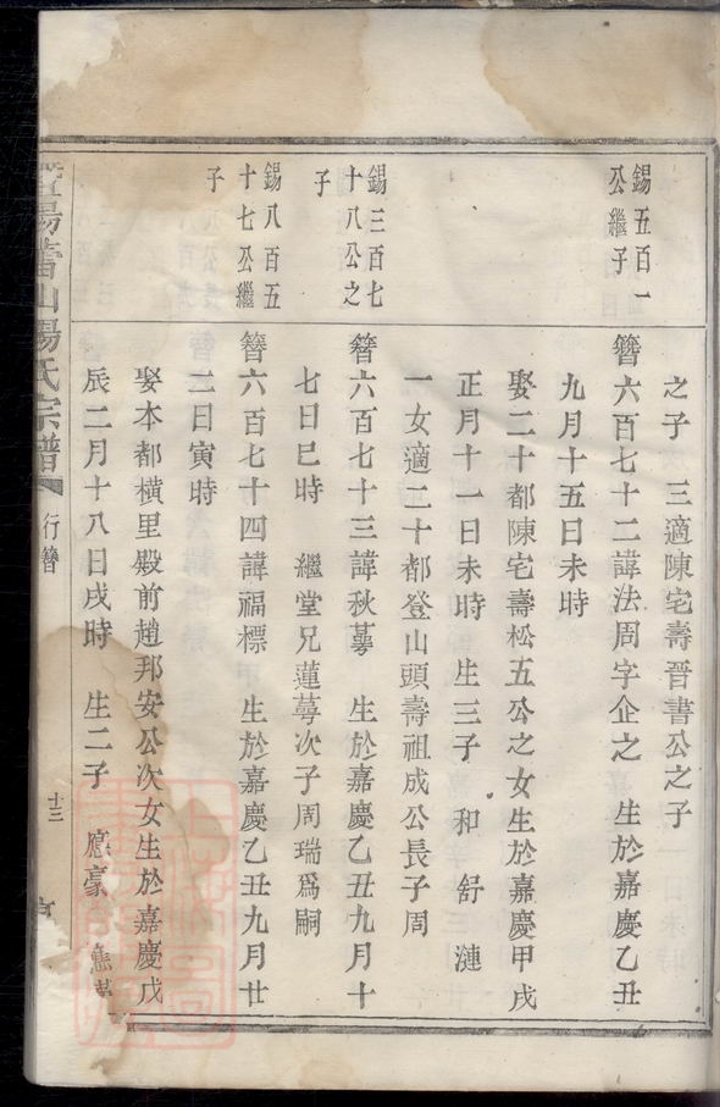 之子　三適陳宅壽晉書公之子
錫五百一
公繼子
簪六百七十二諱法周字企之　生於嘉慶乙丑
九月十五日未時
娶二十都陳宅壽松五公之女生於嘉慶甲戌
正月十一日未時　生三子　和　舒　漣
一女適二十都登山頭壽祖成公長子周
錫三百七
十八公之
子
簪六百七十三諱秋萼　生於嘉慶乙丑九月十
七日巳時　繼堂兄蓮萼次子周瑞爲嗣
錫八百五
十七公繼
子
簪六百七十四諱福標　生於嘉慶乙丑九月廿
二日寅時
娶本都橫里殿前趙邦安公次女生於嘉慶戊
辰二月十八日戌時　生二子　應豪
陽山楊氏宗譜
行簪
十三